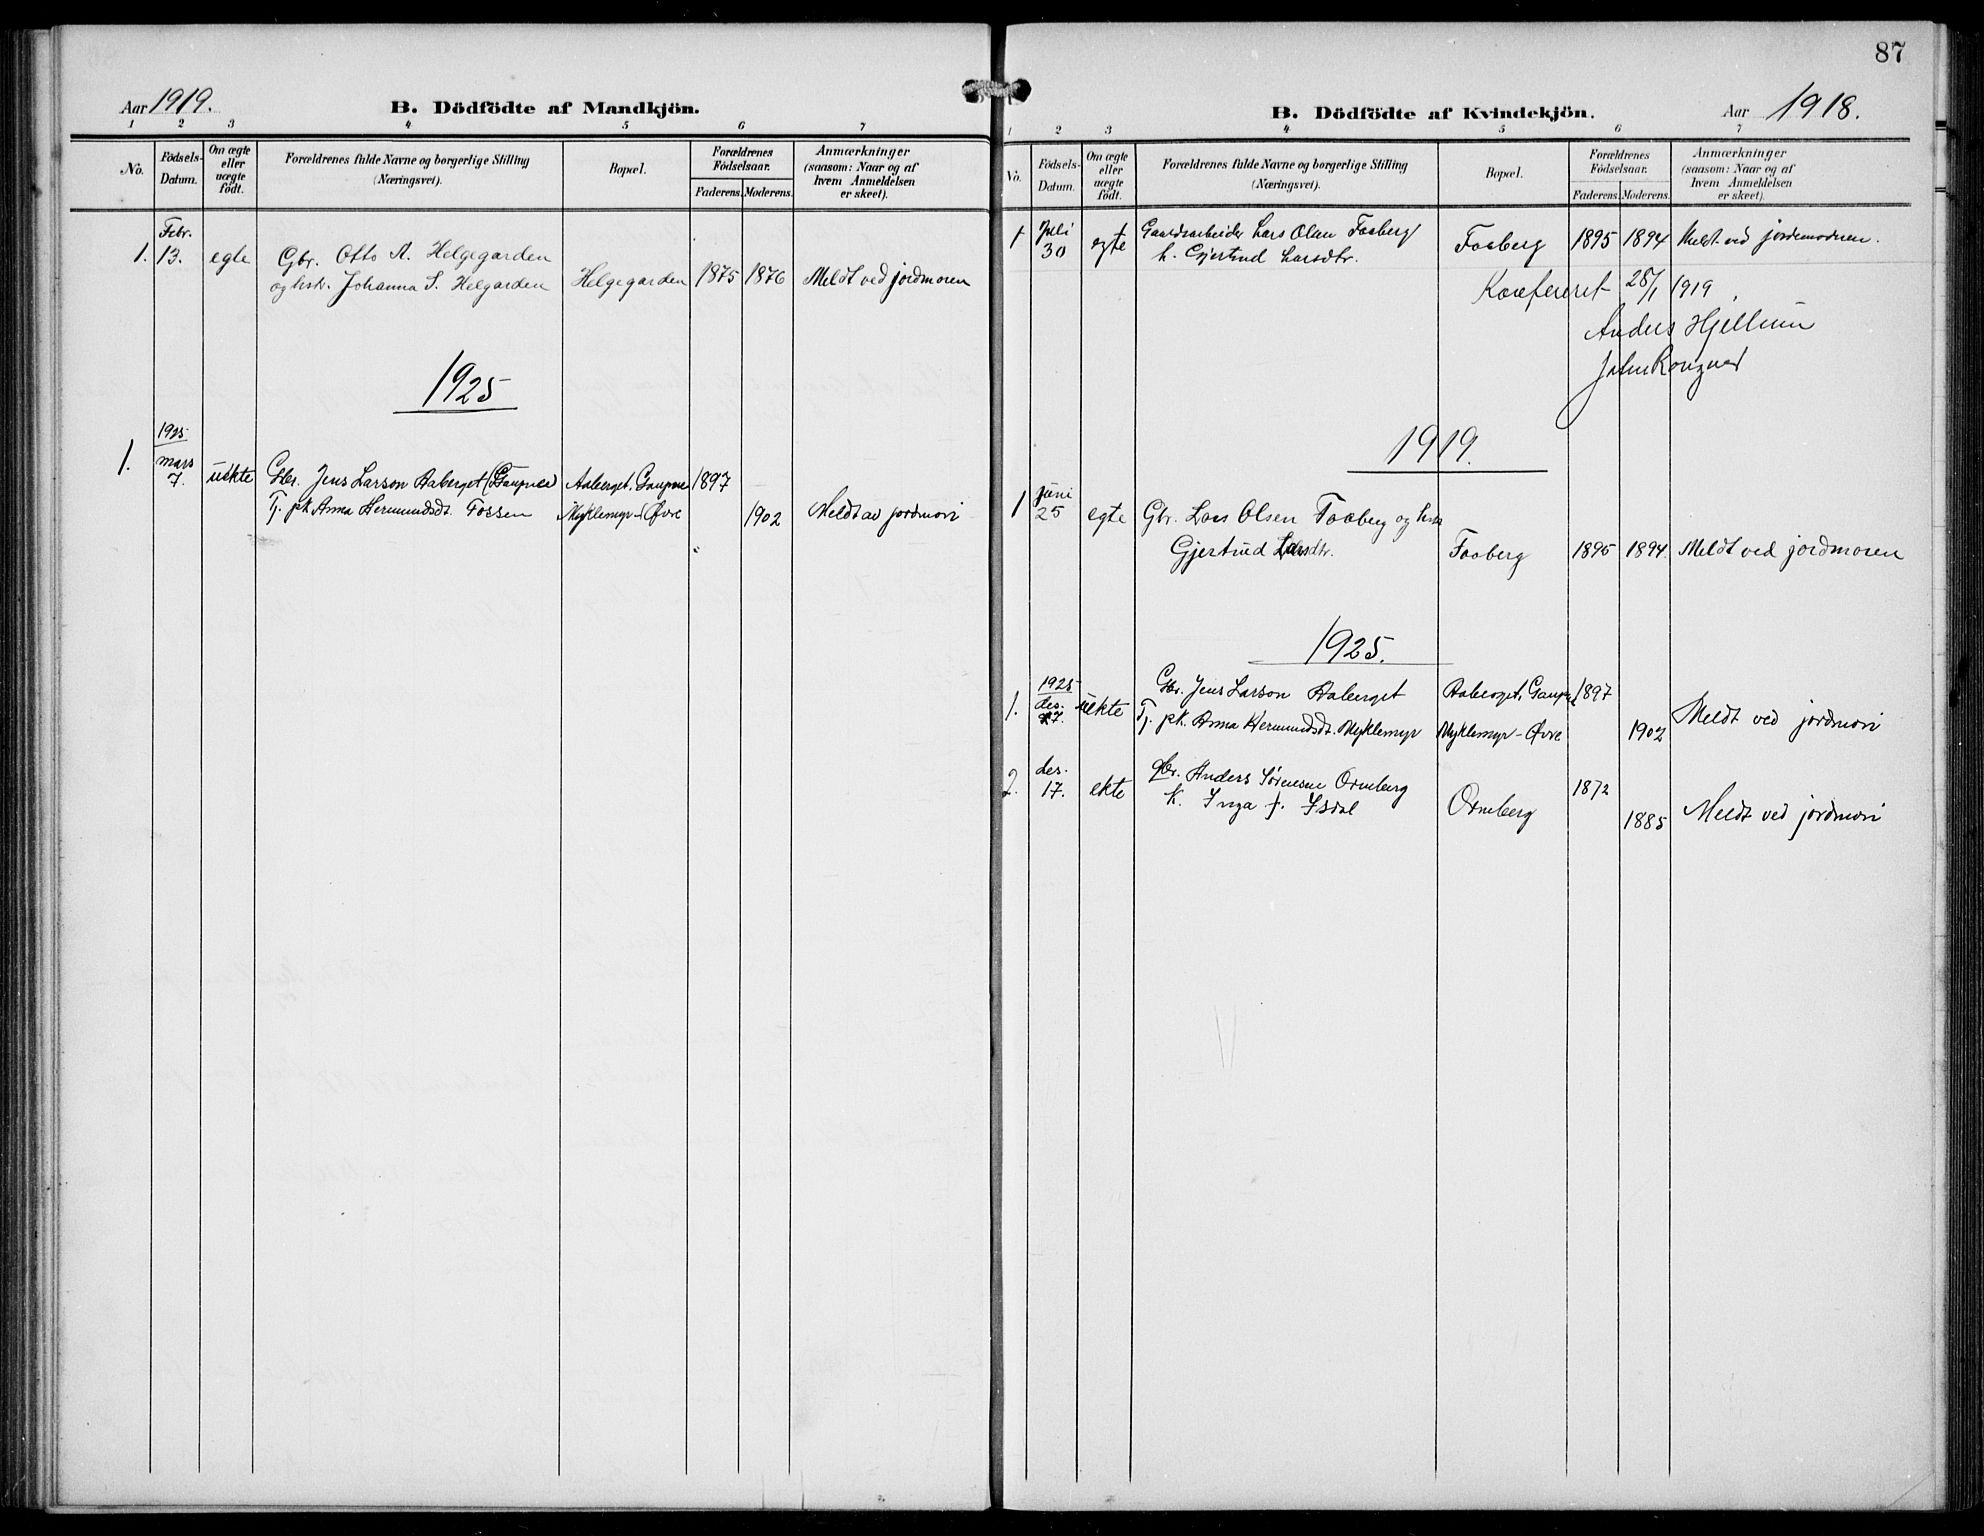 Aar 1919.
B. Dödfödte af Mandkjön.
1 2 3 4 5 6 7
No.
Födsels-Datum.
Om ægte eller uægte födt.
Forældrenes fulde Navne og borgerlige Stilling (Næringsvei).
Bopæl.
Forældrenes Födselsaar.
Faderens. Moderens.
Anmærkninger (saasom: Naar og af hvem Anmeldelsen er skeet).
Febr.
1. 13. egte Gbr. Otto A. Helgegarden
og hst. Johanna S. Helgarden Helgegarden 1875 1876 Meldt ved jordmoren
1925
1925
1. mars 7. uekte Gbr. Jens Larson Aaberget (Gaupne) Aaberget, Gaupne 1897
Tj. pk. Anna Hermundsdt. Fossen Myklemyr-Øvre 1902 Meldt av jordmori
87
B. Dödfödte af Kvindekjön.
Aar 1918.
1 2 3 4 5 6 7
No.
Födsels-Datum.
Om ægte eller uægte födt.
Forældrenes fulde Navne og borgerlige Stilling (Næringsvei).
Bopæl.
Forældrenes Födselsaar.
Faderens. Moderens.
Anmærkninger (saasom: Naar og af hvem Anmeldelsen er skeet).
1 Juli 30 egte Gaardsarbeider Lars Olsen Faaberg
h. Gjertrud Larsdtr. Faaberg 1895 1894 Meldt ved jordemodren.
Konfereret 28/1 1919.
Anders Hjellum
John
1919.
1 juni 25 egte Gbr. Lars Olsen Faaberg og hst
Gjertrud Larsdtr. Faaberg 1895 1894. Meldt ved jordmoren
1925.
1925
1. des. 7. uekte Gbr. Jens Larson Aaberget Aaberget, Gaupne 1897
Tj. pk. Anna Hermundsdt. Myklemyr Myklemyr-Øvre 1902 Meldt ved jordmori
2. des. 17. ekte gbr. Anders Sørensen Ormberg
k. Inga f. Isdal Ormberg 1872 1885 Meldt ved jordmori